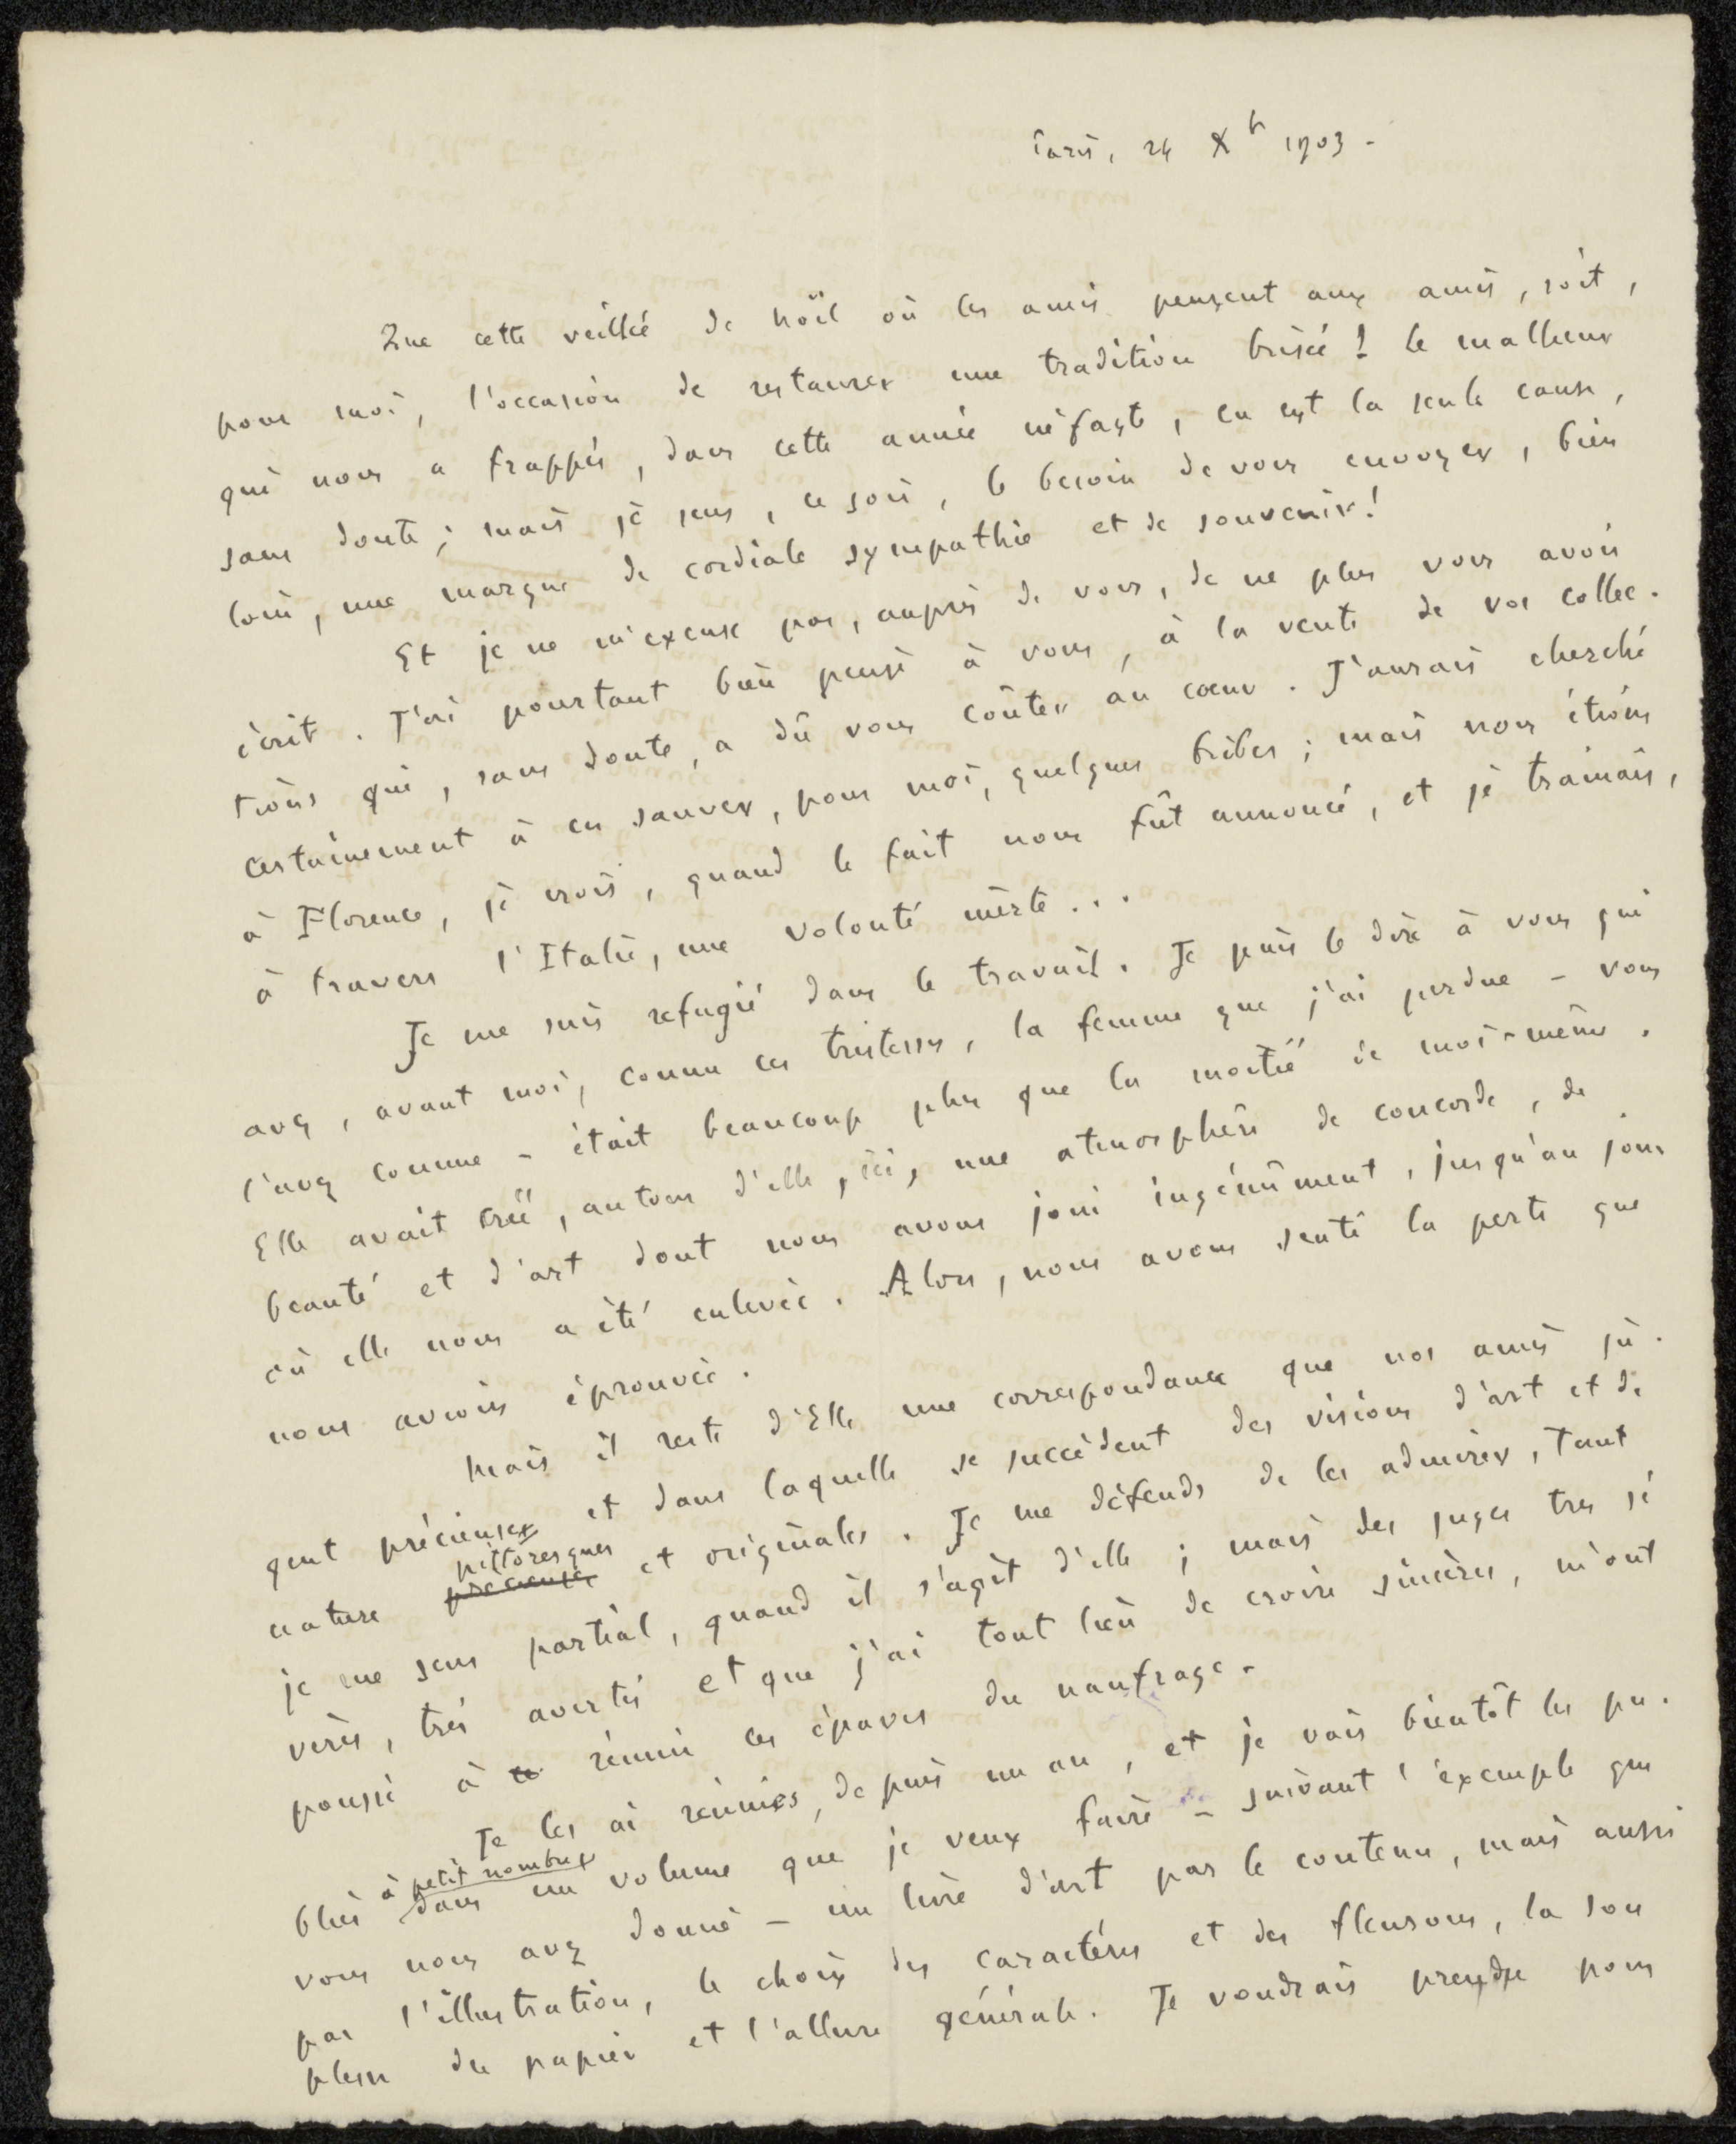 Paris, 24 Xb 1903 -
Que cette veillée de Noël où les amis pensent aux amis, soit,
pour moi, l'occasion de restaurer une tradition brisée ! Le malheur
qui nous a frappés, dans cette année néfaste, en est la seule cause,
sans doute ; mais je sens, ce soir, le besoin de vous envoyer, bien
loin, une marque de cordiale sympathie et de souvenir !
Et je ne m'excuse pas, auprès de vous, de ne plus vous avoir
écrit. J'ai pourtant bien pensé à vous, à la vente de vos collec-
tions qui, sans doute, a dû vous coûter au coeur. J'aurais cherché
certainement à en sauver, pour moi, quelques bribes ; mais nous étions
à Florence, je crois, quand le fait nous fût annoncé, et je trainais,
à travers l'Italie, une volonté inerte...
Je me suis refugié dans le travail. Je puis le dire à vous qui
avez, avant moi, connu ces tristesses, la femme que j'ai perdue - vous
l'avez connue - était beaucoup plus que la moitié de moi-même.
Elle avait créé, autour d'elle, ici, une atmosphère de concorde, de
beauté et d'art dont nous avons joui ingénûment, jusqu'au jour
où elle nous a été enlevée. Alors, nous avons senti la perte que
nous avions éprouvée.
Mais il reste d'Elle une correspondance que nos amis ju-
gent précieuse et dans laquelle se succèdent des visions d'art et de
nature précieuses pittoresques et originales. Je me défends de les admirer, tant
je me sens partial, quand il s'agit d'elle ; mais des juges tres sé
vères, très avertis et que j'ai tout lieu de croire sincères, m'ont
poussé à réunir ces épaves du naufrage -
Je les ai réunies, depuis un an, et je vais bientôt les pu-
blier à petit nombre dans un volume que je veux faire - suivant l'exemple que
vous nous avez donné - un livre d'art par le contenu, mais aussi
par l'illustration, le choix des caractères et des fleurons, la sou
plesse du papier et l'allure générale. Je voudrais prendre pour